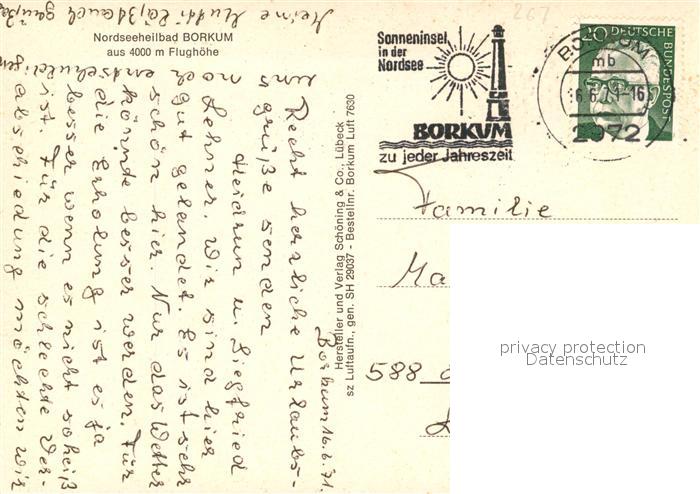 Nordseeheilbad BORKUM
aus 4000 m Flughöhe
Borkum 16.6.71.
Recht herzliche Urlaubs-
grüße senden
uns
Heidrun u. Siegfried
Lehner. Wir sind hier
noch gut gelandet. Es ist sehr
schön hier. Nur das Wetter
könnte besser werden. Für
die Erholung ist es ja
besser wenn es nicht so heiß
ist. Für die schlechte Ver-
abschiedung möchten wir
entschuldigen
Meine Mutti läßt auch grüßen
Hersteller und Verlag Schöning & Co., Lübeck
sz Luftaufn., gen. SH 29037 - Bestellnr. Borkum Luft 7630
267
Sonneninsel
in der
Nordsee
BORKUM
zu jeder Jahreszeit
BORKUM
mb
16
2972
20 DEUTSCHE
BUNDESPOST
Familie
Ma
588
privacy protection
Datenschutz